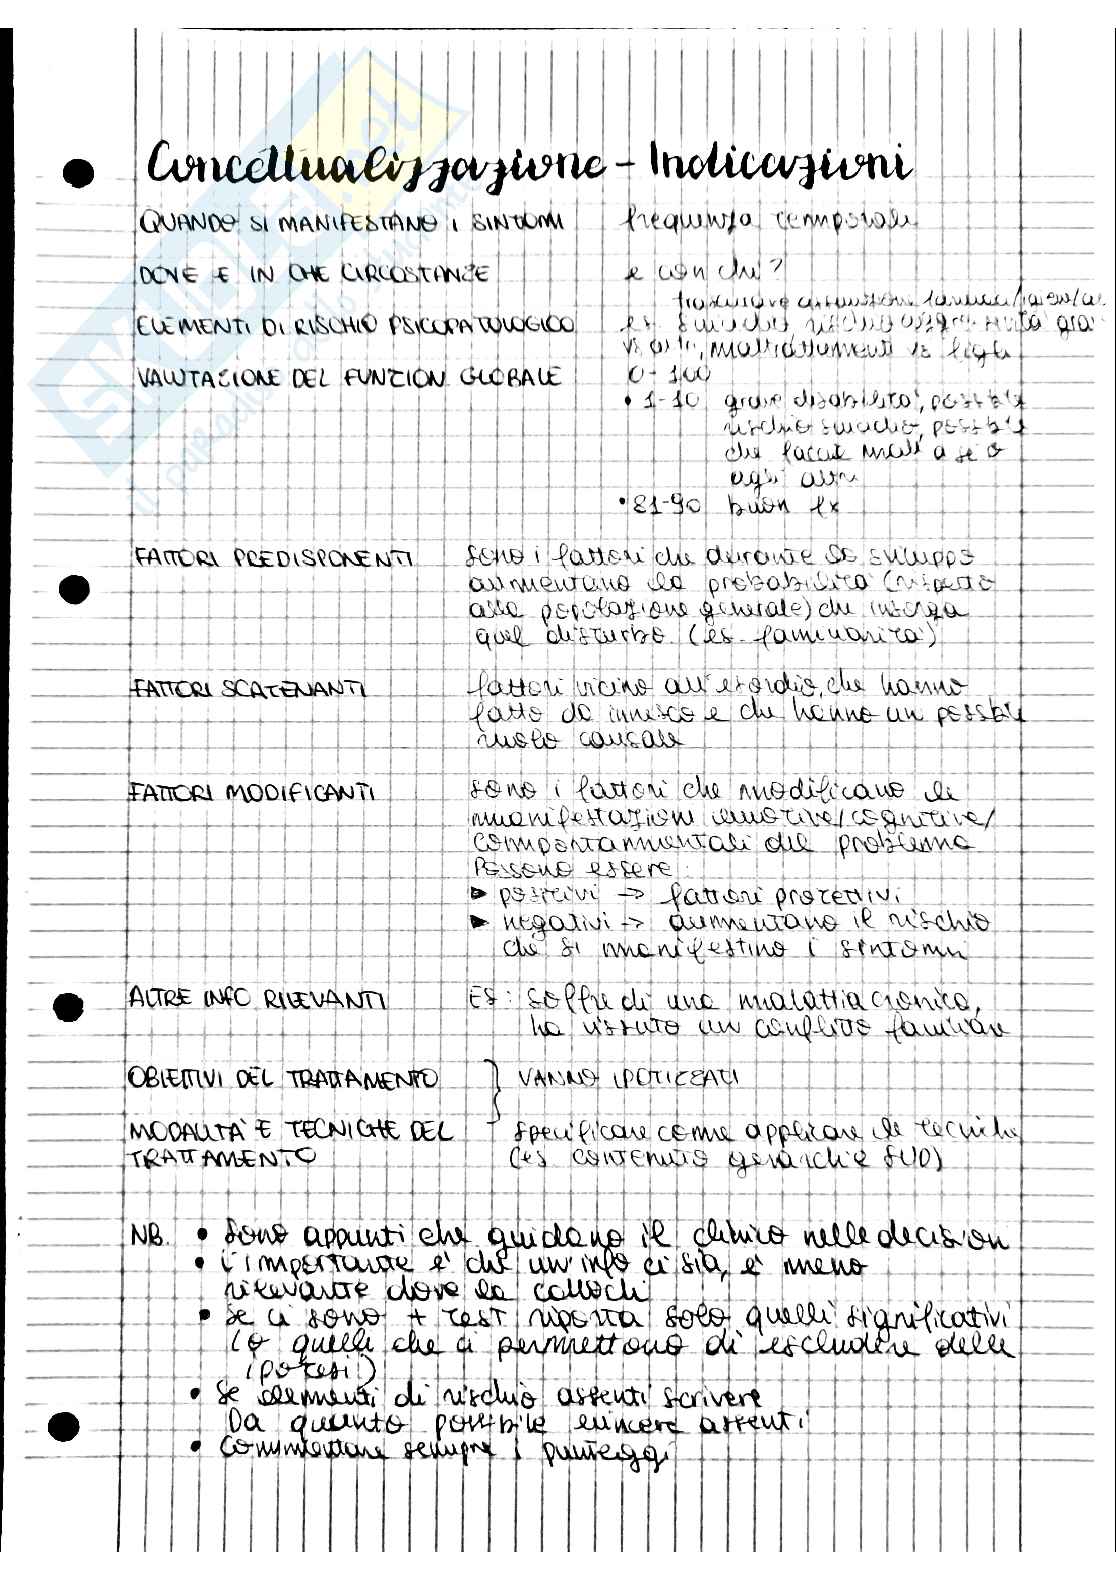 Concettualizzazione - Indicazioni
QUANDO SI MANIFESTANO I SINTOMI frequenza temporale
DOVE E IN CHE CIRCOSTANZE e con chi?
ELEMENTI DI RISCHIO PSICOPATOLOGICO es suicidio
vs altri, maltrattamenti vs figli
VALUTAZIONE DEL FUNZION GLOBALE 0-100
• 1-10 grave disabilità, possibile
rischio suicidio, possibile
che faccia male a sé o
agli altri
• 81-90 buon fx
FATTORI PREDISPONENTI sono i fattori che durante lo sviluppo
aumentano la probabilità (rispetto
alla popolazione generale) che insorga
quel disturbo (es. familiarità)
FATTORI SCATENANTI fattori vicino all'esordio, che hanno
fatto da innesco e che hanno un possibile
ruolo causale
FATTORI MODIFICANTI sono i fattori che modificano le
manifestazioni emotive/cognitive/
comportamentali del problema
Possono essere:
► positivi -> fattori protettivi
► negativi -> aumentano il rischio
che si manifestino i sintomi
ALTRE INFO RILEVANTI ES: soffre di una malattia cronica,
ha vissuto un conflitto familiare
OBIETTIVI DEL TRATTAMENTO } VANNO IPOTIZZATI
MODALITÀ E TECNICHE DEL specificare come applicare le tecniche
TRATTAMENTO (es contenuto gerarchie SUD)
NB. • Sono appunti che guidano il clinico nelle decision
• L'importante è che un'info ci sia, è meno
rilevante dove la collochi
• Se ci sono + test riporta solo quelli significativi
(o quelli che ci permettono di escludere delle
ipotesi)
• Se elementi di rischio assenti scrivere
Da quanto possibile evincere assenti
• Commentare sempre i punteggi